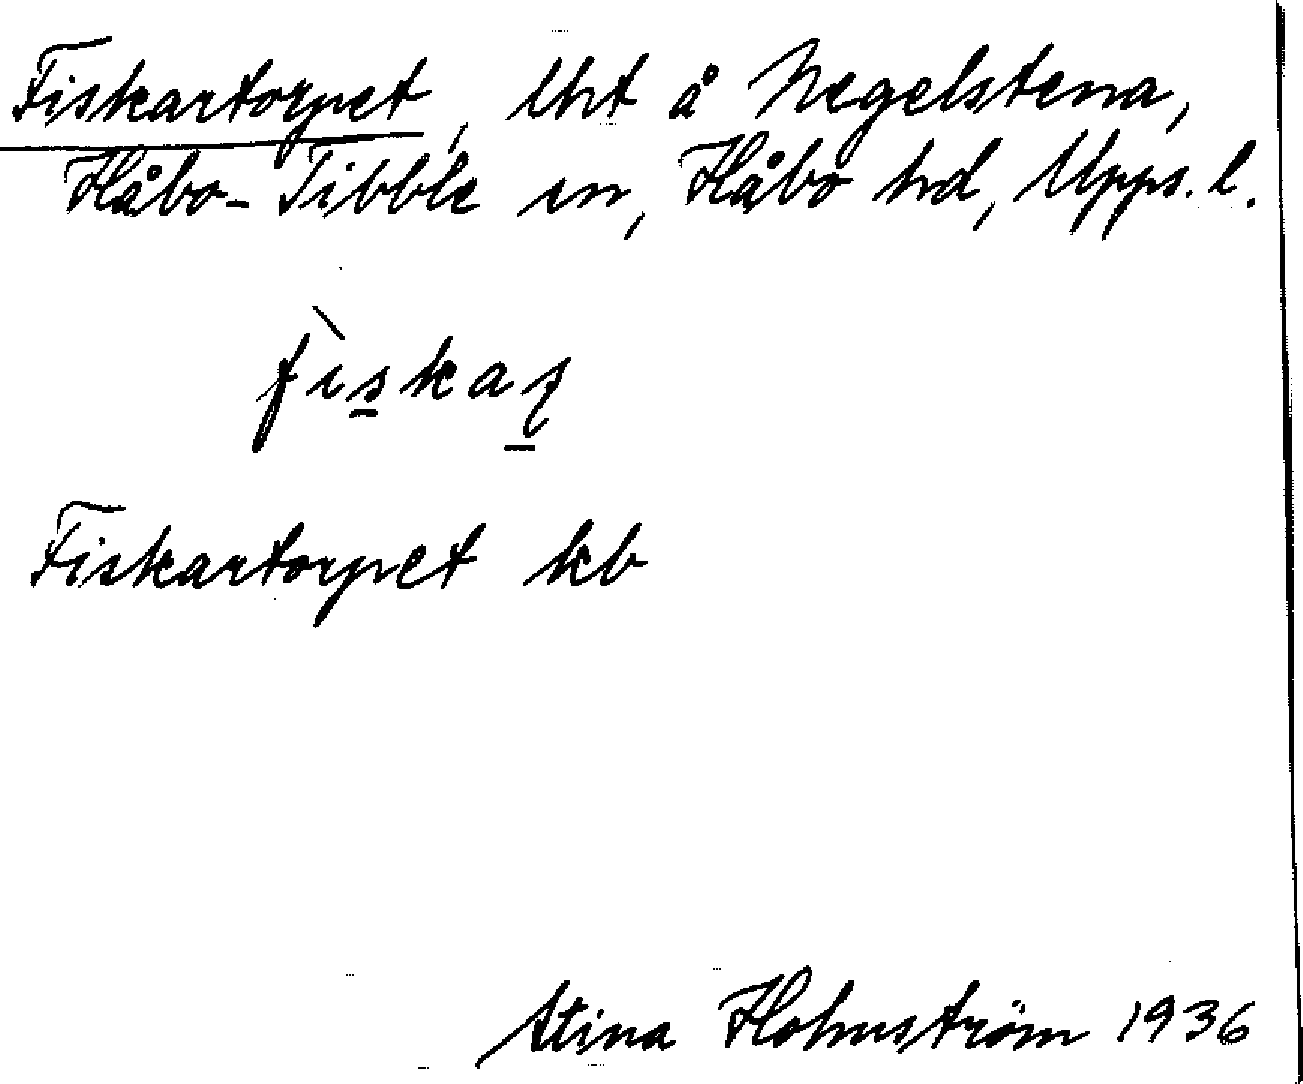 Fiskartorpet, lht å Negelstena,
Håbo-Tibble sn, Håbo hd, Upps. l.
fìskaʂ
Fiskartorpet kb
Stina Holmström 1936